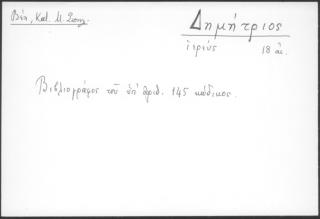 Βέη, Κατ. Μ. Σουμ.
Δημήτριος
ἱερεύς 18 αἰ.
Βιβλιογράφος τοῦ ὑπ' ἀριθ. 145 κώδικος.